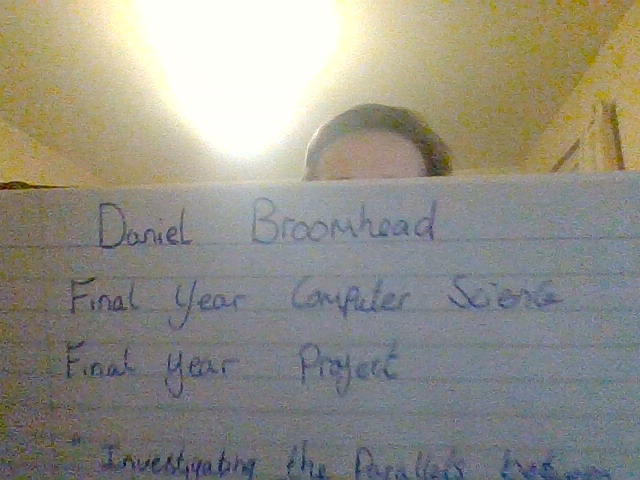 Daniel Broomhead
Final Year Computer Science
Final Year Project
" Investigating the Parallels between